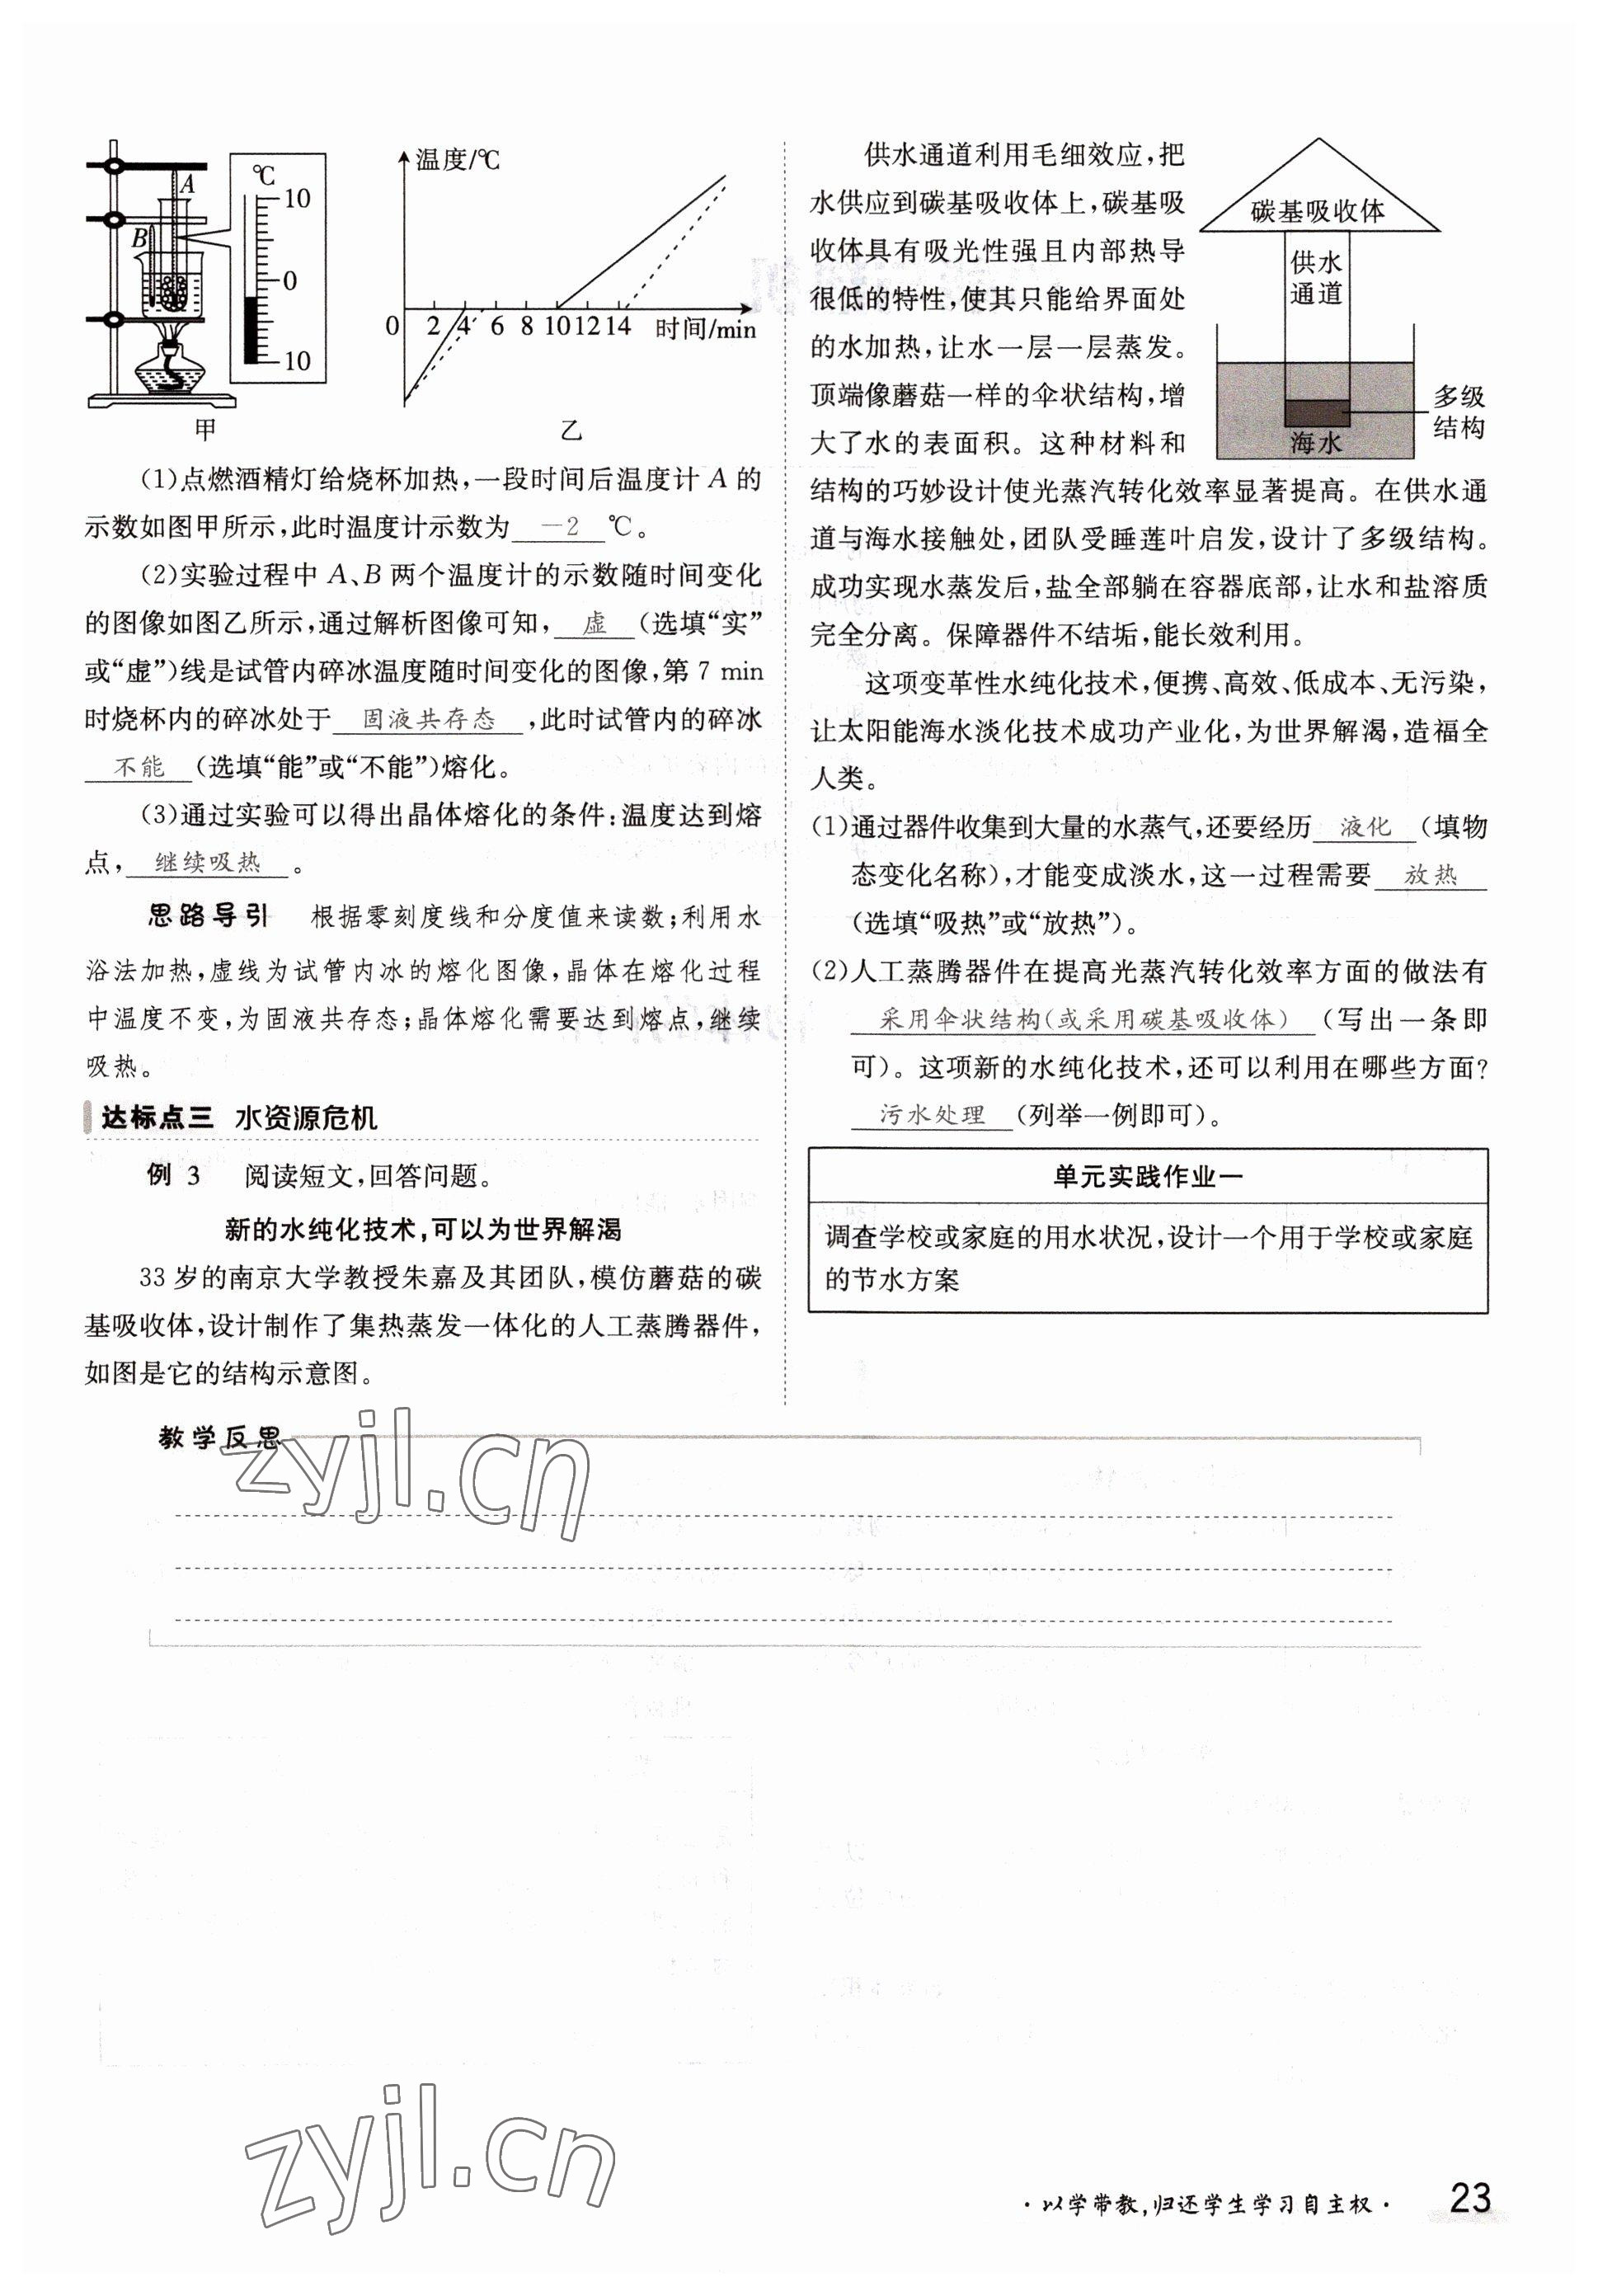 ℃
10
0
10
A
B
甲
温度/℃
0 2 4 6 8 10 12 14 时间/min
乙
(1)点燃酒精灯给烧杯加热,一段时间后温度计 A 的
示数如图甲所示,此时温度计示数为 －2 ℃。
(2)实验过程中 A、B 两个温度计的示数随时间变化
的图像如图乙所示,通过解析图像可知, 虚 (选填“实”
或“虚”)线是试管内碎冰温度随时间变化的图像,第 7 min
时烧杯内的碎冰处于 固液共存态 ,此时试管内的碎冰
不能 (选填“能”或“不能”)熔化。
(3)通过实验可以得出晶体熔化的条件:温度达到熔
点, 继续吸热 。
思路导引 根据零刻度线和分度值来读数;利用水
浴法加热,虚线为试管内冰的熔化图像,晶体在熔化过程
中温度不变,为固液共存态;晶体熔化需要达到熔点,继续
吸热。
达标点三 水资源危机
例 3 阅读短文,回答问题。
新的水纯化技术,可以为世界解渴
33 岁的南京大学教授朱嘉及其团队,模仿蘑菇的碳
基吸收体,设计制作了集热蒸发一体化的人工蒸腾器件,
如图是它的结构示意图。
供水通道利用毛细效应,把
水供应到碳基吸收体上,碳基吸
收体具有吸光性强且内部热导
很低的特性,使其只能给界面处
的水加热,让水一层一层蒸发。
顶端像蘑菇一样的伞状结构,增
大了水的表面积。这种材料和
结构的巧妙设计使光蒸汽转化效率显著提高。在供水通
道与海水接触处,团队受睡莲叶启发,设计了多级结构。
成功实现水蒸发后,盐全部躺在容器底部,让水和盐溶质
完全分离。保障器件不结垢,能长效利用。
碳基吸收体
供水
通道
多级
结构
海水
这项变革性水纯化技术,便携、高效、低成本、无污染,
让太阳能海水淡化技术成功产业化,为世界解渴,造福全
人类。
(1)通过器件收集到大量的水蒸气,还要经历 液化 (填物
态变化名称),才能变成淡水,这一过程需要 放热
(选填“吸热”或“放热”)。
(2)人工蒸腾器件在提高光蒸汽转化效率方面的做法有
采用伞状结构(或采用碳基吸收体) (写出一条即
可)。这项新的水纯化技术,还可以利用在哪些方面?
污水处理 (列举一例即可)。
单元实践作业一
调查学校或家庭的用水状况,设计一个用于学校或家庭
的节水方案
教学反思
zyjl.cn
zyjl.cn
·以学带教,归还学生学习自主权· 23